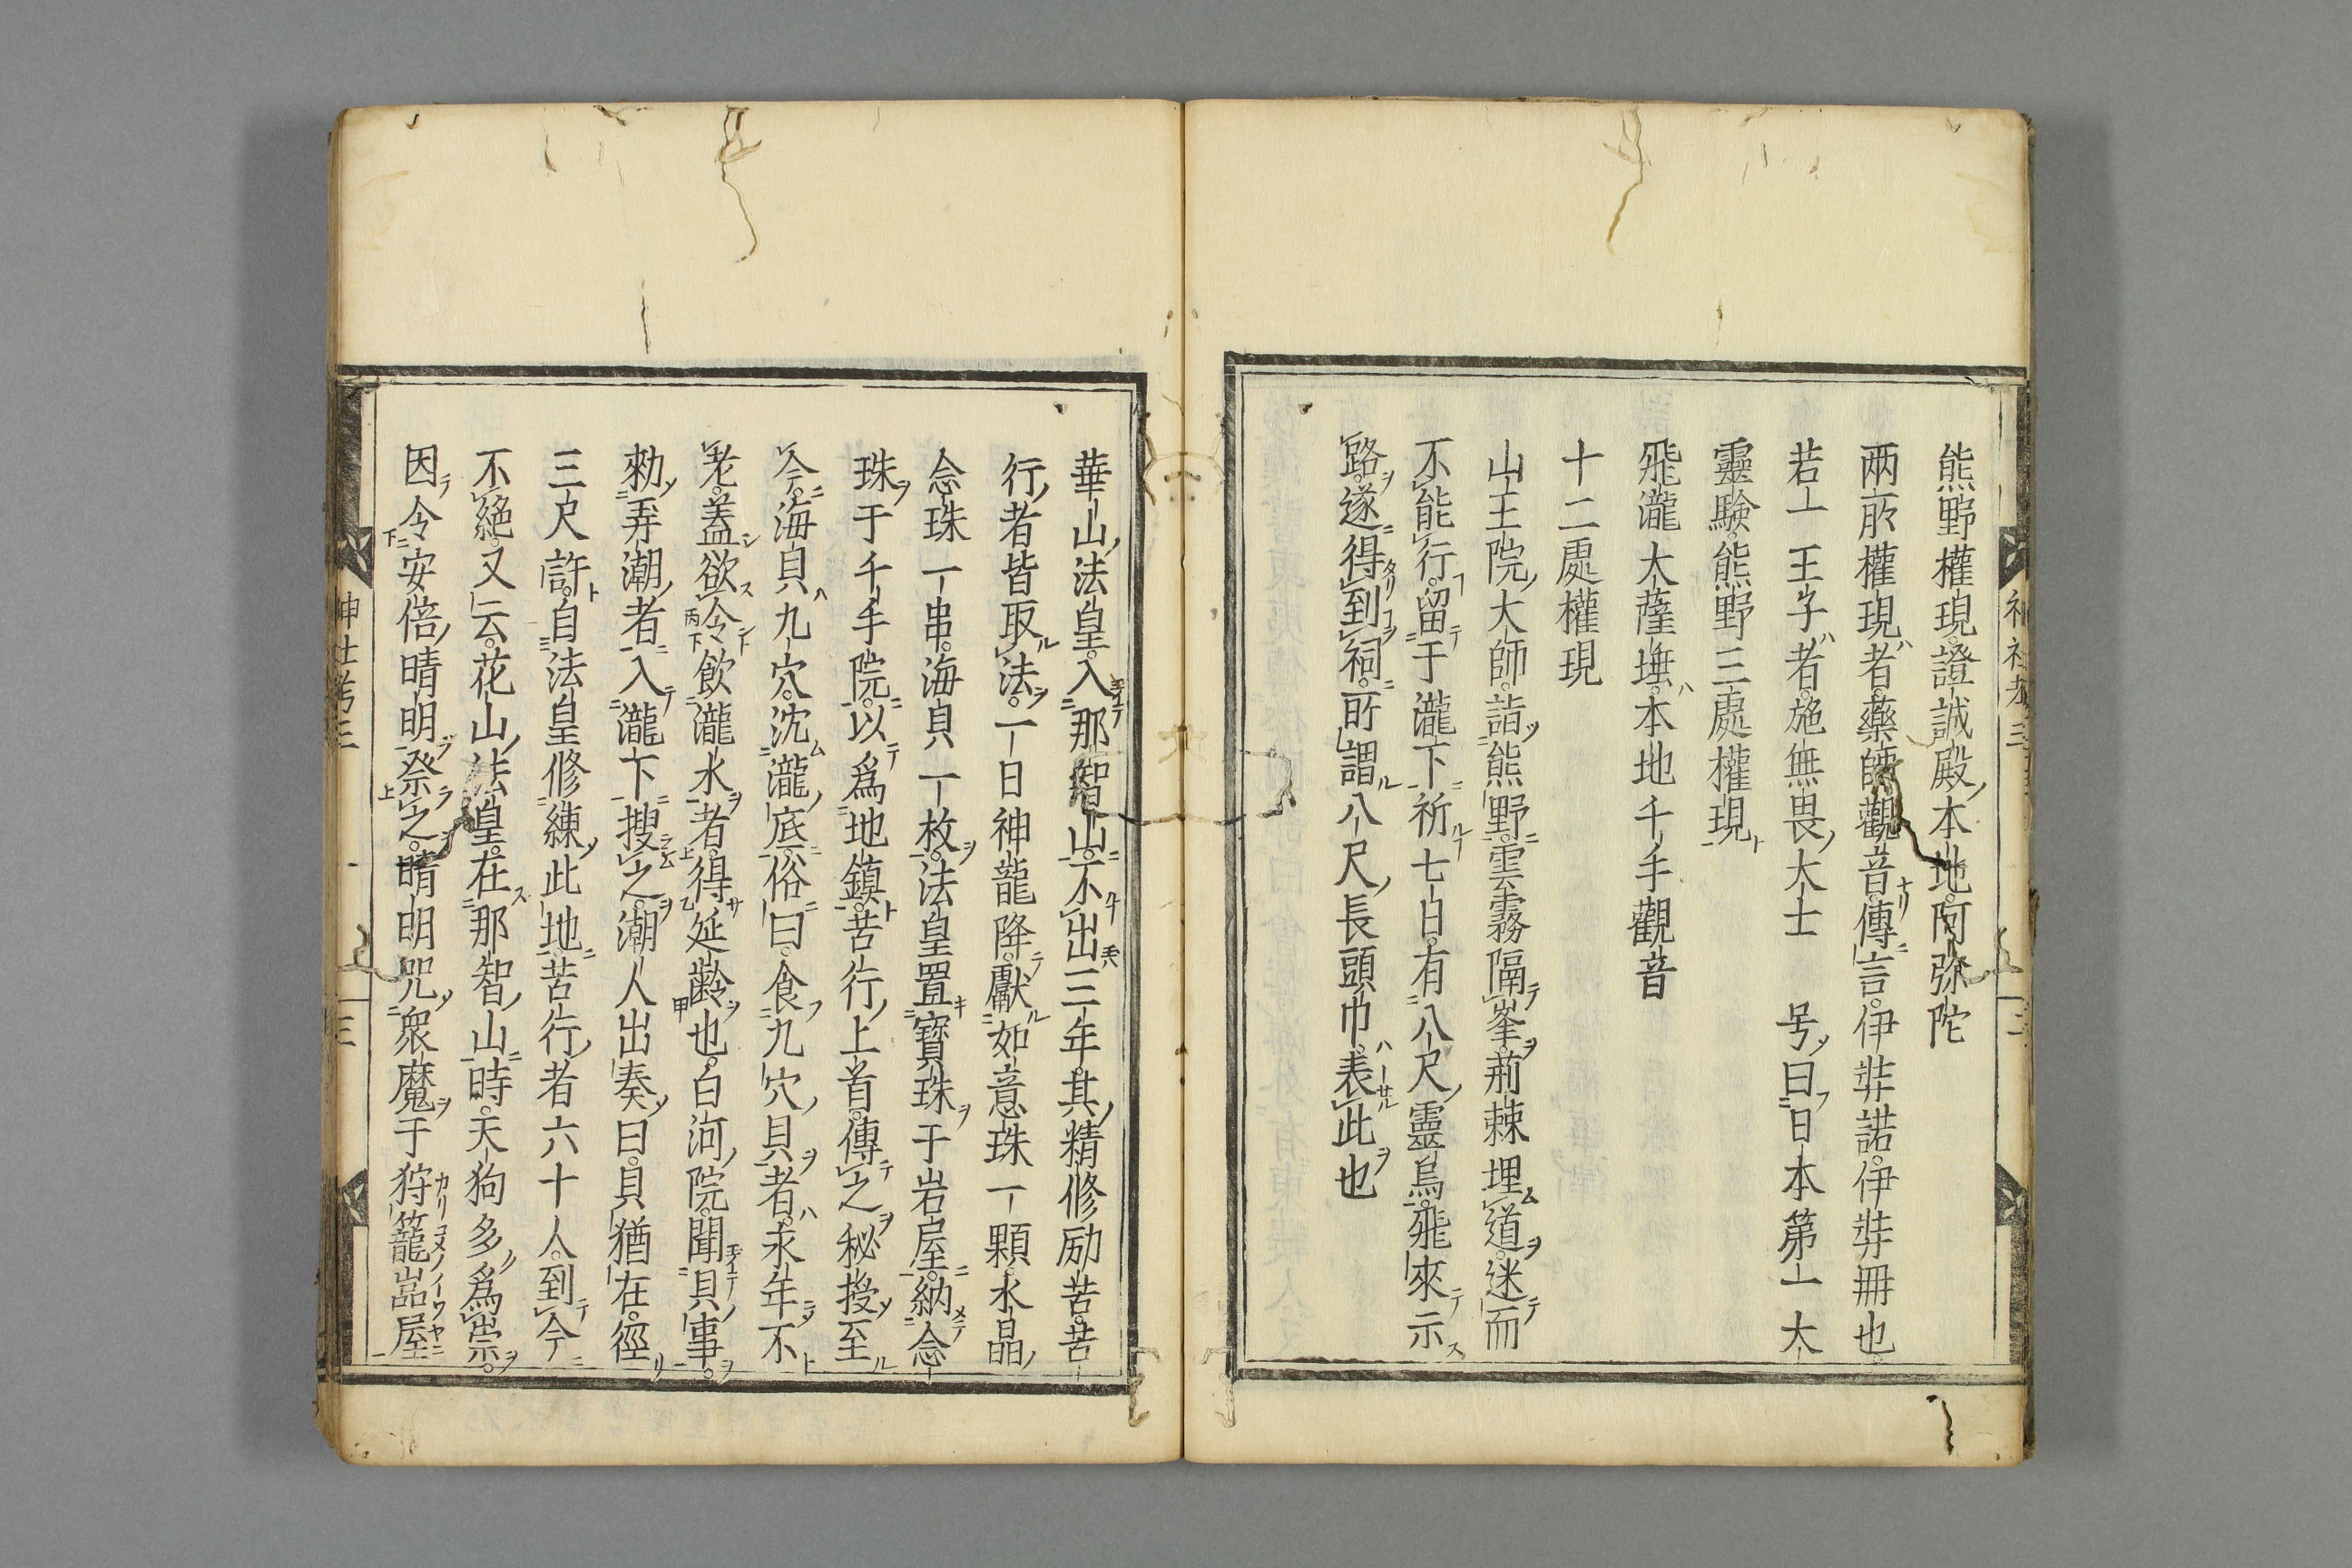 熊野權現證誠殿本地阿弥陀
兩所權現者藥師觀音傳言伊弉諾伊弉冊也
若一王子者施無畏大士　号曰日本第一大
靈驗熊野三處權現
飛瀧大薩埵本地千手觀音
十二處權現
山王院大師詣熊野雲霧隔峯荊棘埋道迷而
不能行留于瀧下祈七日有八尺靈烏飛來示
路遂得到祠所謂八尺長頭巾表此也
華山法皇入那智山不出三年其精修励苦苦
行者皆取法一日神龍降獻如意珠一顆水晶
念珠一串海貝一枚法皇置寶珠于岩屋納念
珠于千手院以爲地鎮苦行上首傳之秘授至
今海貝九穴沈瀧底俗曰食九穴貝者永年不
老蓋欲令飲瀧水者得延齡也白河院聞貝事
勅弄潮者入瀧下搜之潮人出奏曰貝猶在徑
三尺許自法皇修練此地苦行者六十人到今
不絕又云花山法皇在那智山時天狗多爲祟
因令安倍晴明祭之晴明咒衆魔于狩籠岩屋
神社考三